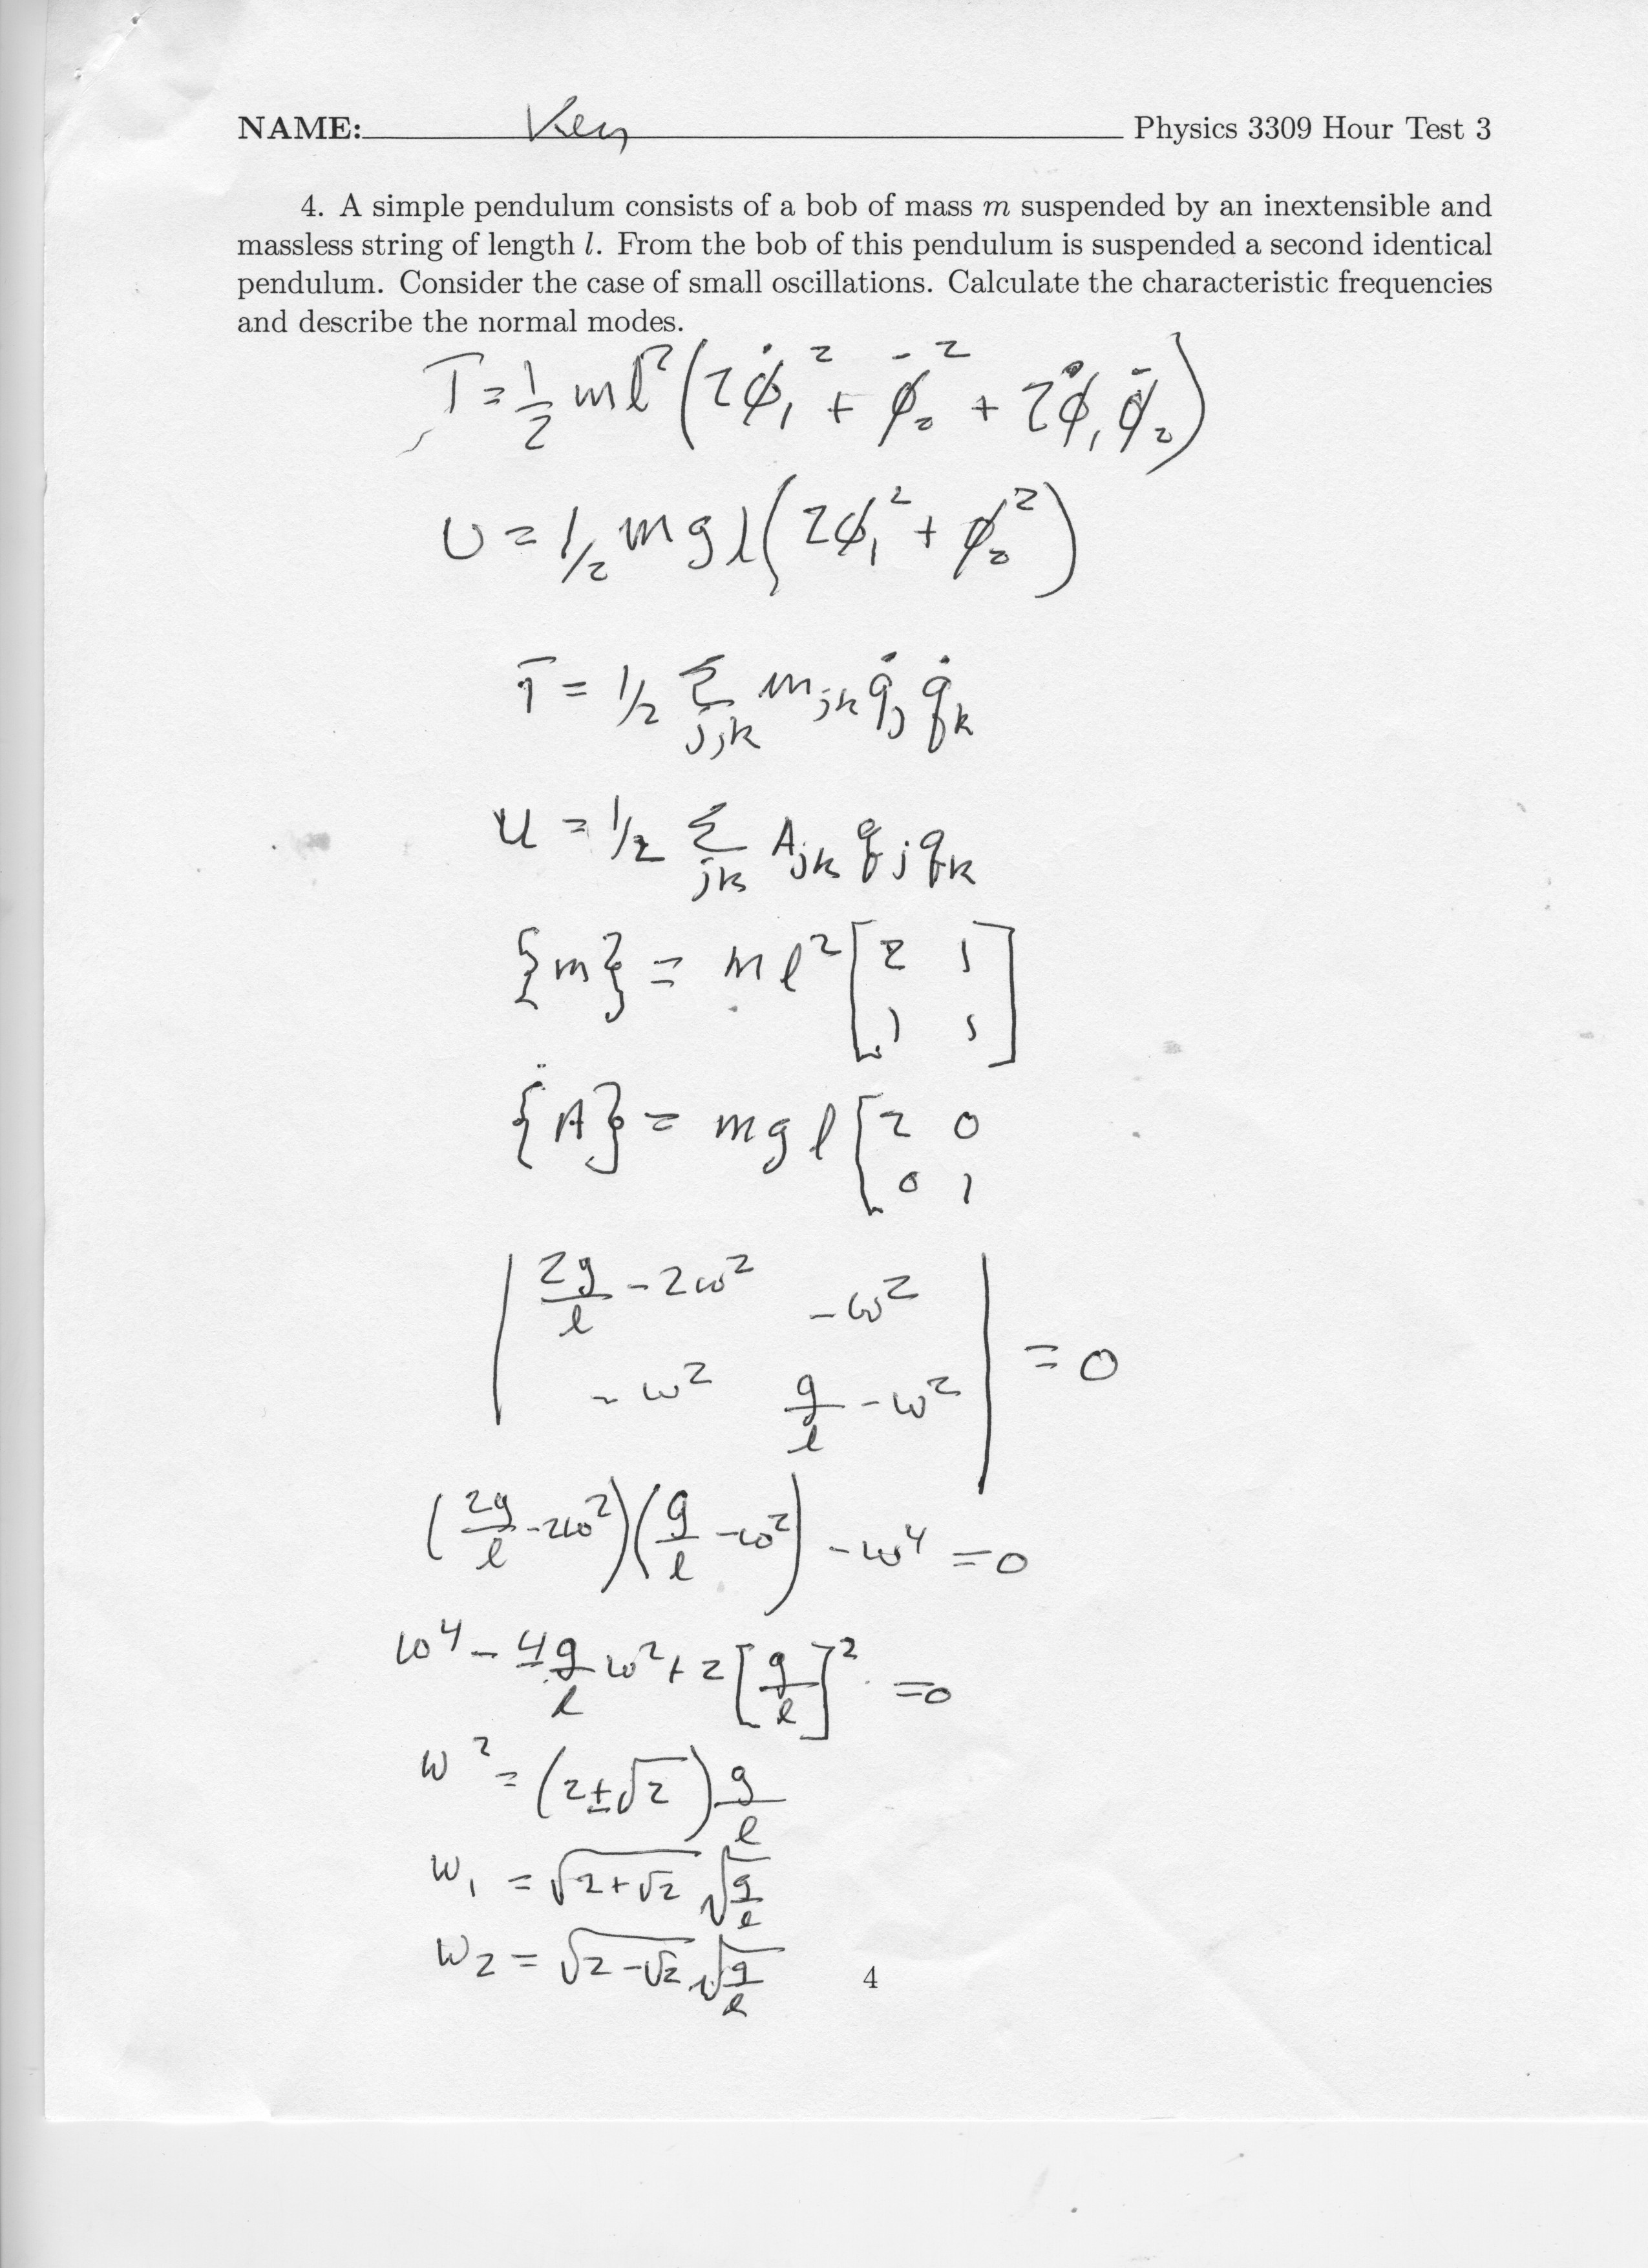 NAME: Key Physics 3309 Hour Test 3
4. A simple pendulum consists of a bob of mass m suspended by an inextensible and
massless string of length l. From the bob of this pendulum is suspended a second identical
pendulum. Consider the case of small oscillations. Calculate the characteristic frequencies
and describe the normal modes.
T = 1/2 ml²(2φ̇₁² + φ̇₂² + 2φ̇₁φ̇₂)
U = 1/2 mgl(2φ₁² + φ₂²)
T = 1/2 Σ_{j,k} m_{jk} q̇_j q̇_k
U = 1/2 Σ_{jk} A_{jk} q_j q_k
{m} = ml² [2 1
1 1]
{A} = mgl [2 0
0 1
| 2g/l - 2ω² -ω² |
| -ω² g/l - ω² | = 0
(2g/l - 2ω²)(g/l - ω²) - ω⁴ = 0
ω⁴ - 4g/l ω² + 2[g/l]² = 0
ω² = (2±√2) g/l
ω₁ = √(2+√2) √(g/l)
ω₂ = √(2-√2) √(g/l)
4